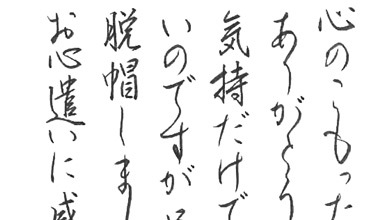 心のこもった
ありがとう
気持だけで
いのですが
脱帽しま
お心遣いに感